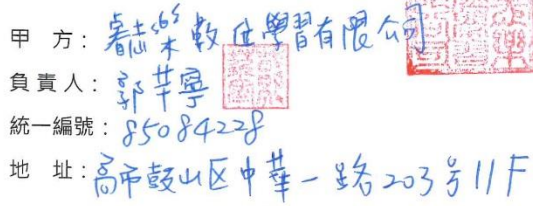 甲 方：睿誌樂數位學習有限公司
負責人：郭芊寧
統一編號：85084228
地 址：高市鼓山区中華一路203号11F